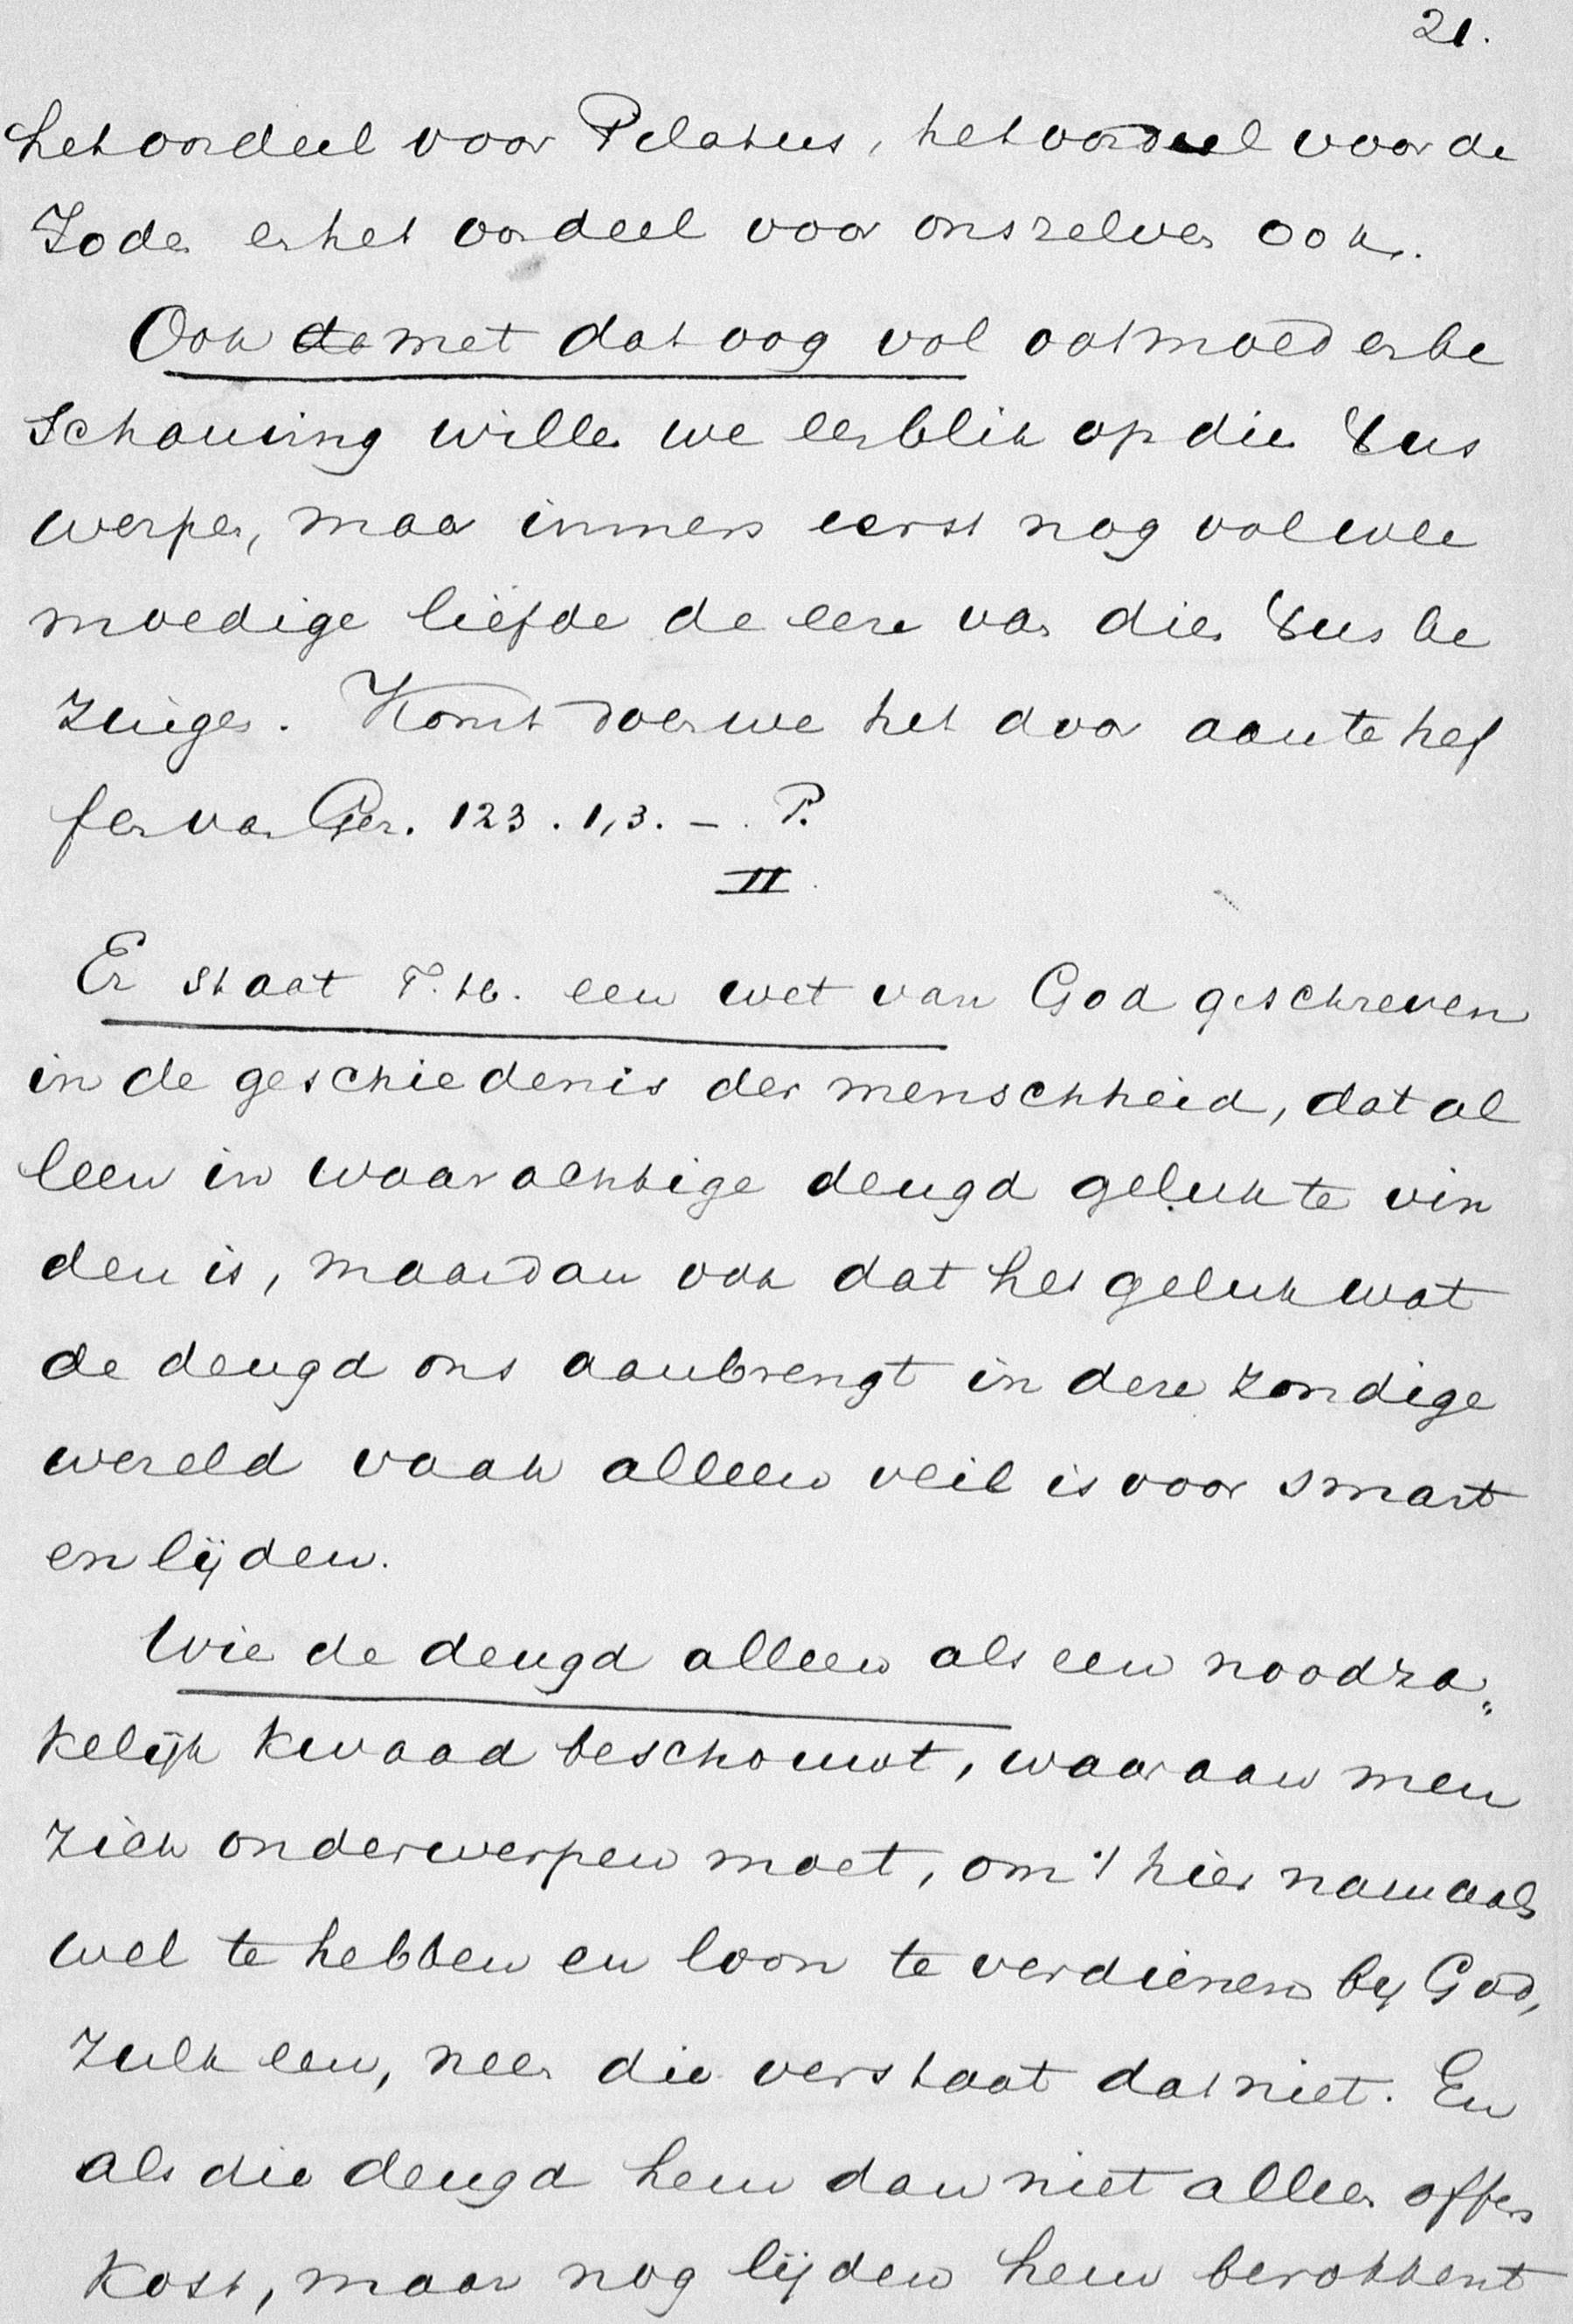 21.
het oordeel voor Pilatus, het oordeel voor de
Joden en het oordeel voor onszelven ook.
Ook da met dat oog vol ootmoed en be
schouwing willen we een blik op dien Jezus
werpen, maar immers eerst nog vol wee
moedige liefde de eere van dien Jezus be
zingen. Komt doen we het door aan te hef
fen van Gez. 123. 1,3. – P.
II.
Er staat T. H. een wet van God geschreven
in de geschiedenis der menschheid, dat al
leen in waarachtige deugd geluk te vin
den is, maar dan ook dat het geluk wat
de deugd ons aanbrengt in deze zondige
wereld vaak alleen veil is voor smart
en lijden.
Wie de deugd alleen als een noodza„
kelijk kwaad beschouwt, waaraan men
zich onderwerpen moet, om 't hier namaals
wel te hebben en loon te verdienen bij God,
zulk een, neen die verstaat dat niet. En
als die deugd hem dan niet alleen offers
kost, maar nog lijden hem berokkent